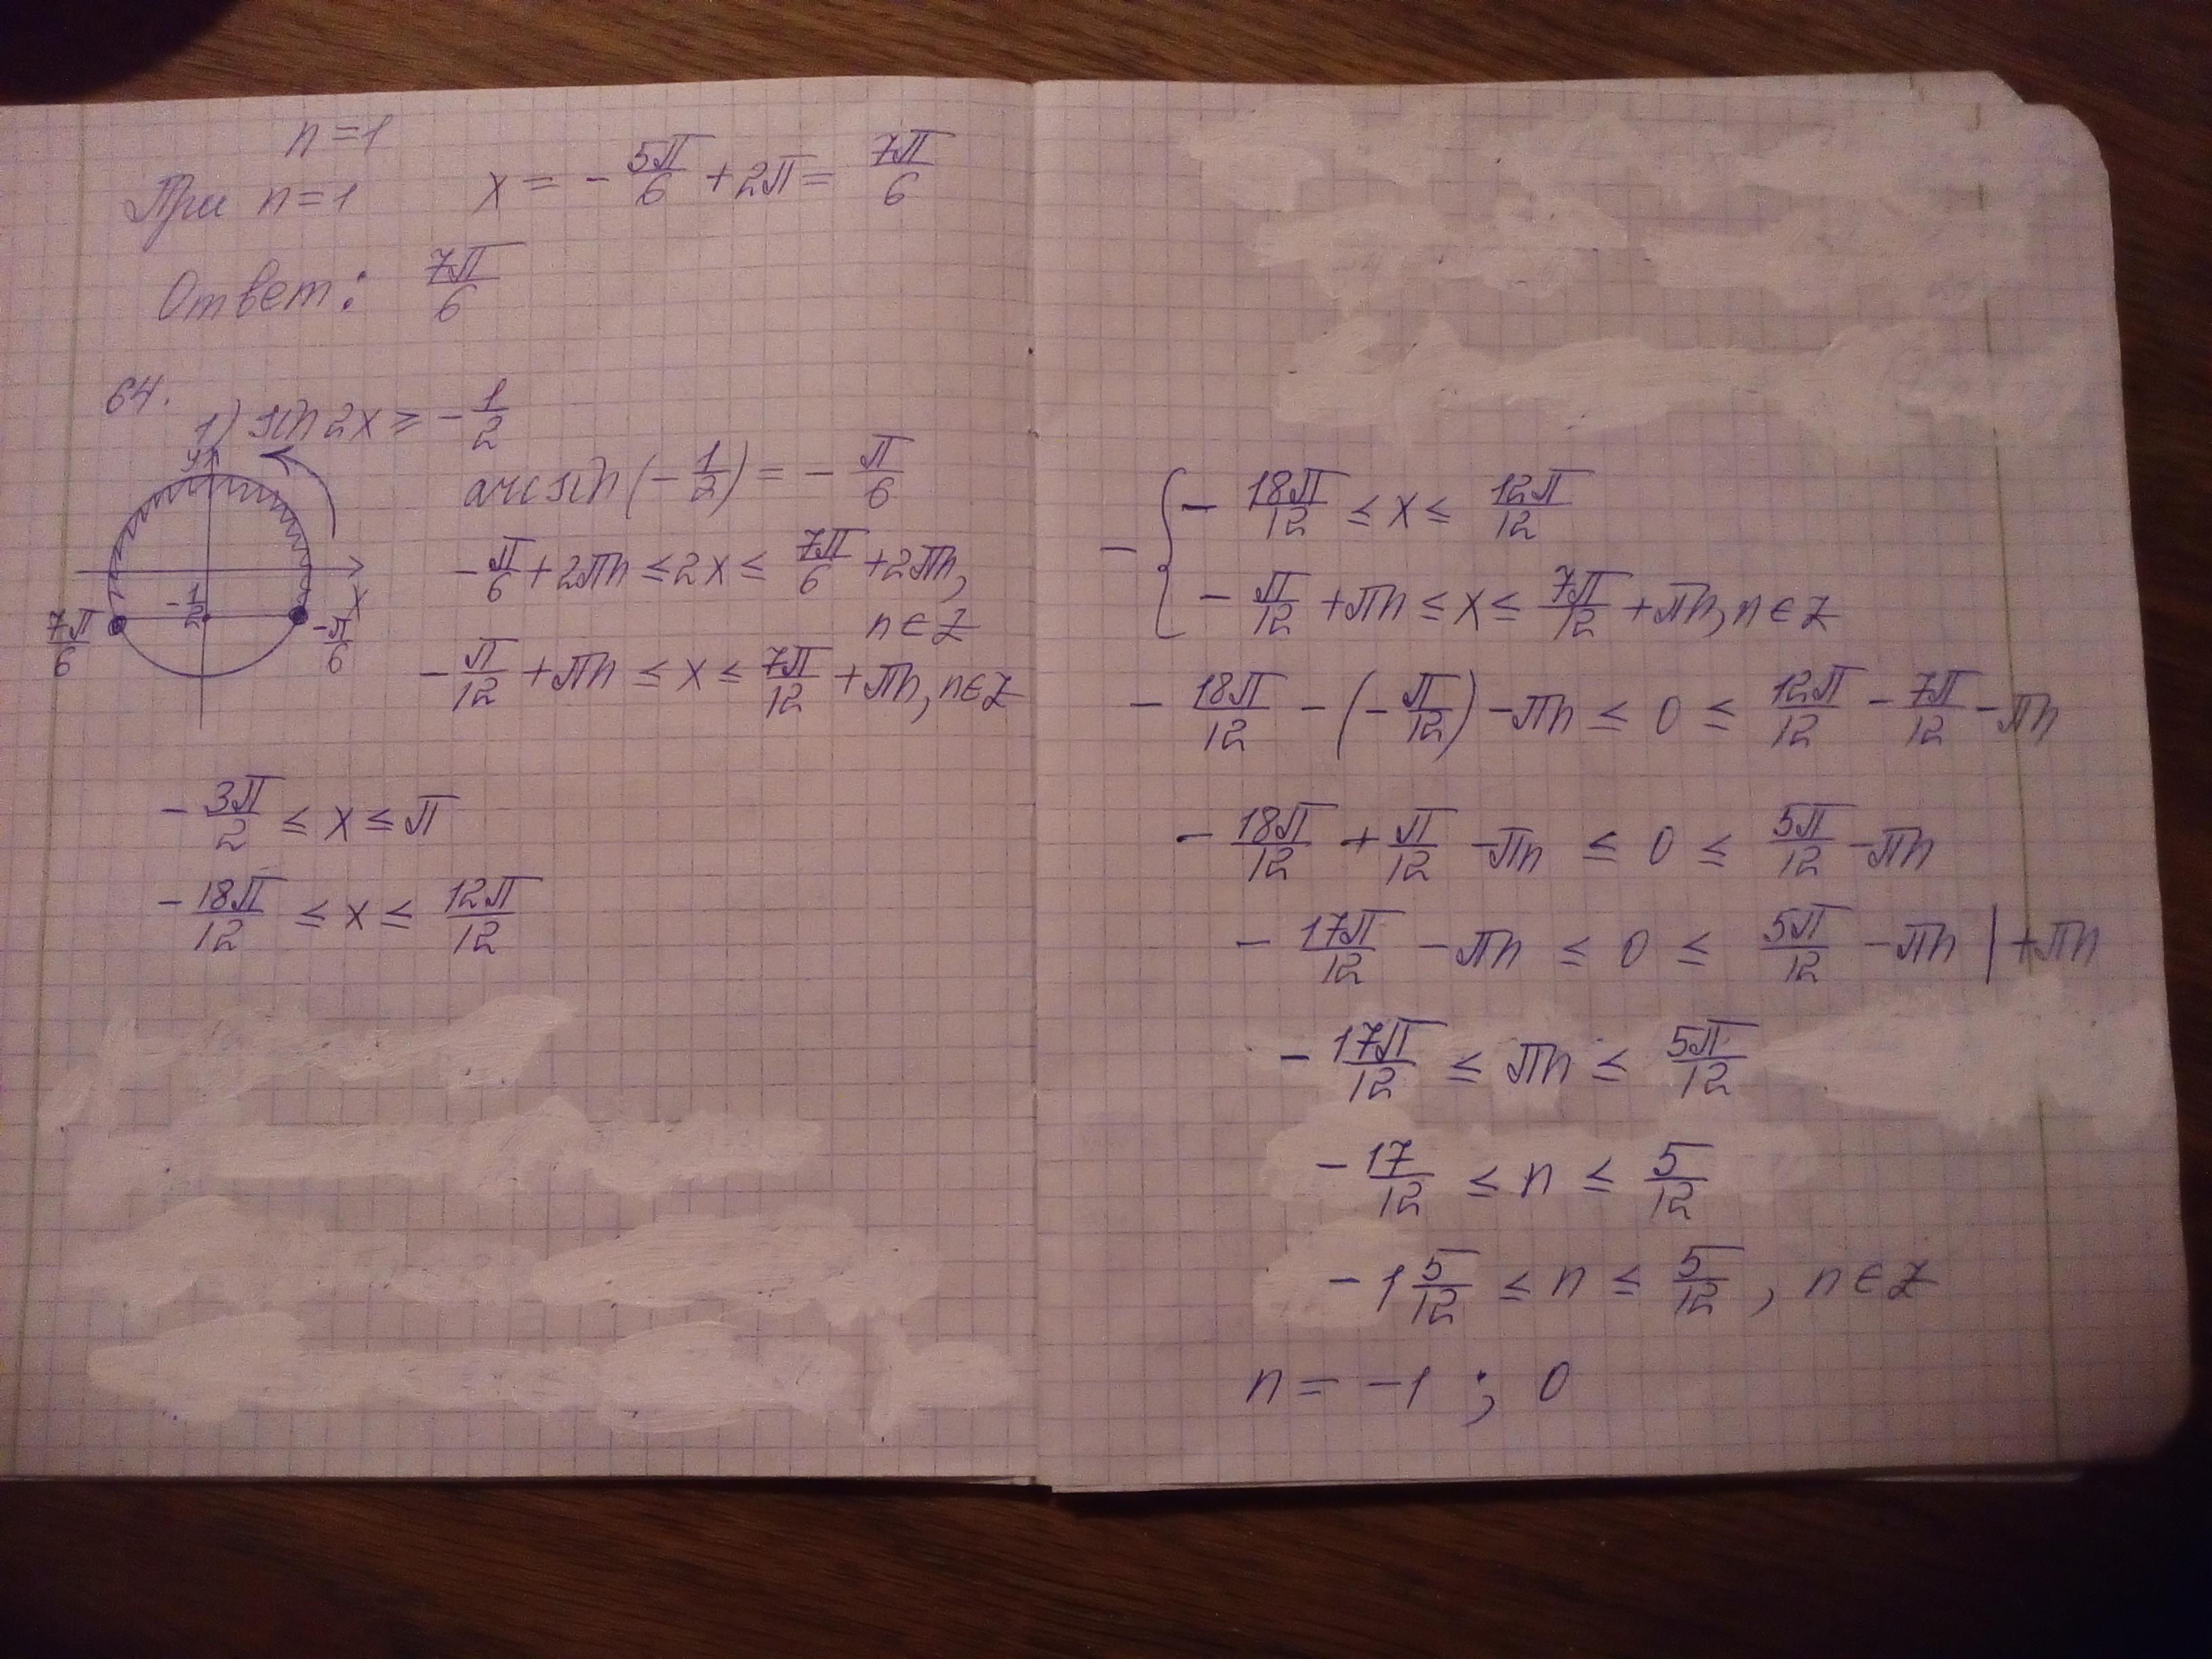 n=1
При n=1 x = - 5π/6 + 2π = 7π/6
Ответ: 7π/6
64.
1) sin 2x ≥ - 1/2
y
arcsin(- 1/2) = - π/6
- π/6 + 2πn ≤ 2x ≤ 7π/6 + 2πn,
n ∈ Z
x
- 1/2
7π/6
- π/6
- π/12 + πn ≤ x ≤ 7π/12 + πn, n ∈ Z
- 3π/2 ≤ x ≤ π
- 18π/12 ≤ x ≤ 12π/12
- { - 18π/12 ≤ x ≤ 12π/12
- π/12 + πn ≤ x ≤ 7π/12 + πn, n ∈ Z
- 18π/12 - (- π/12) - πn ≤ 0 ≤ 12π/12 - 7π/12 - πn
- 18π/12 + π/12 - πn ≤ 0 ≤ 5π/12 - πn
- 17π/12 - πn ≤ 0 ≤ 5π/12 - πn | + πn
- 17π/12 ≤ πn ≤ 5π/12
- 17/12 ≤ n ≤ 5/12
- 1 5/12 ≤ n ≤ 5/12, n ∈ Z
n = -1 ; 0